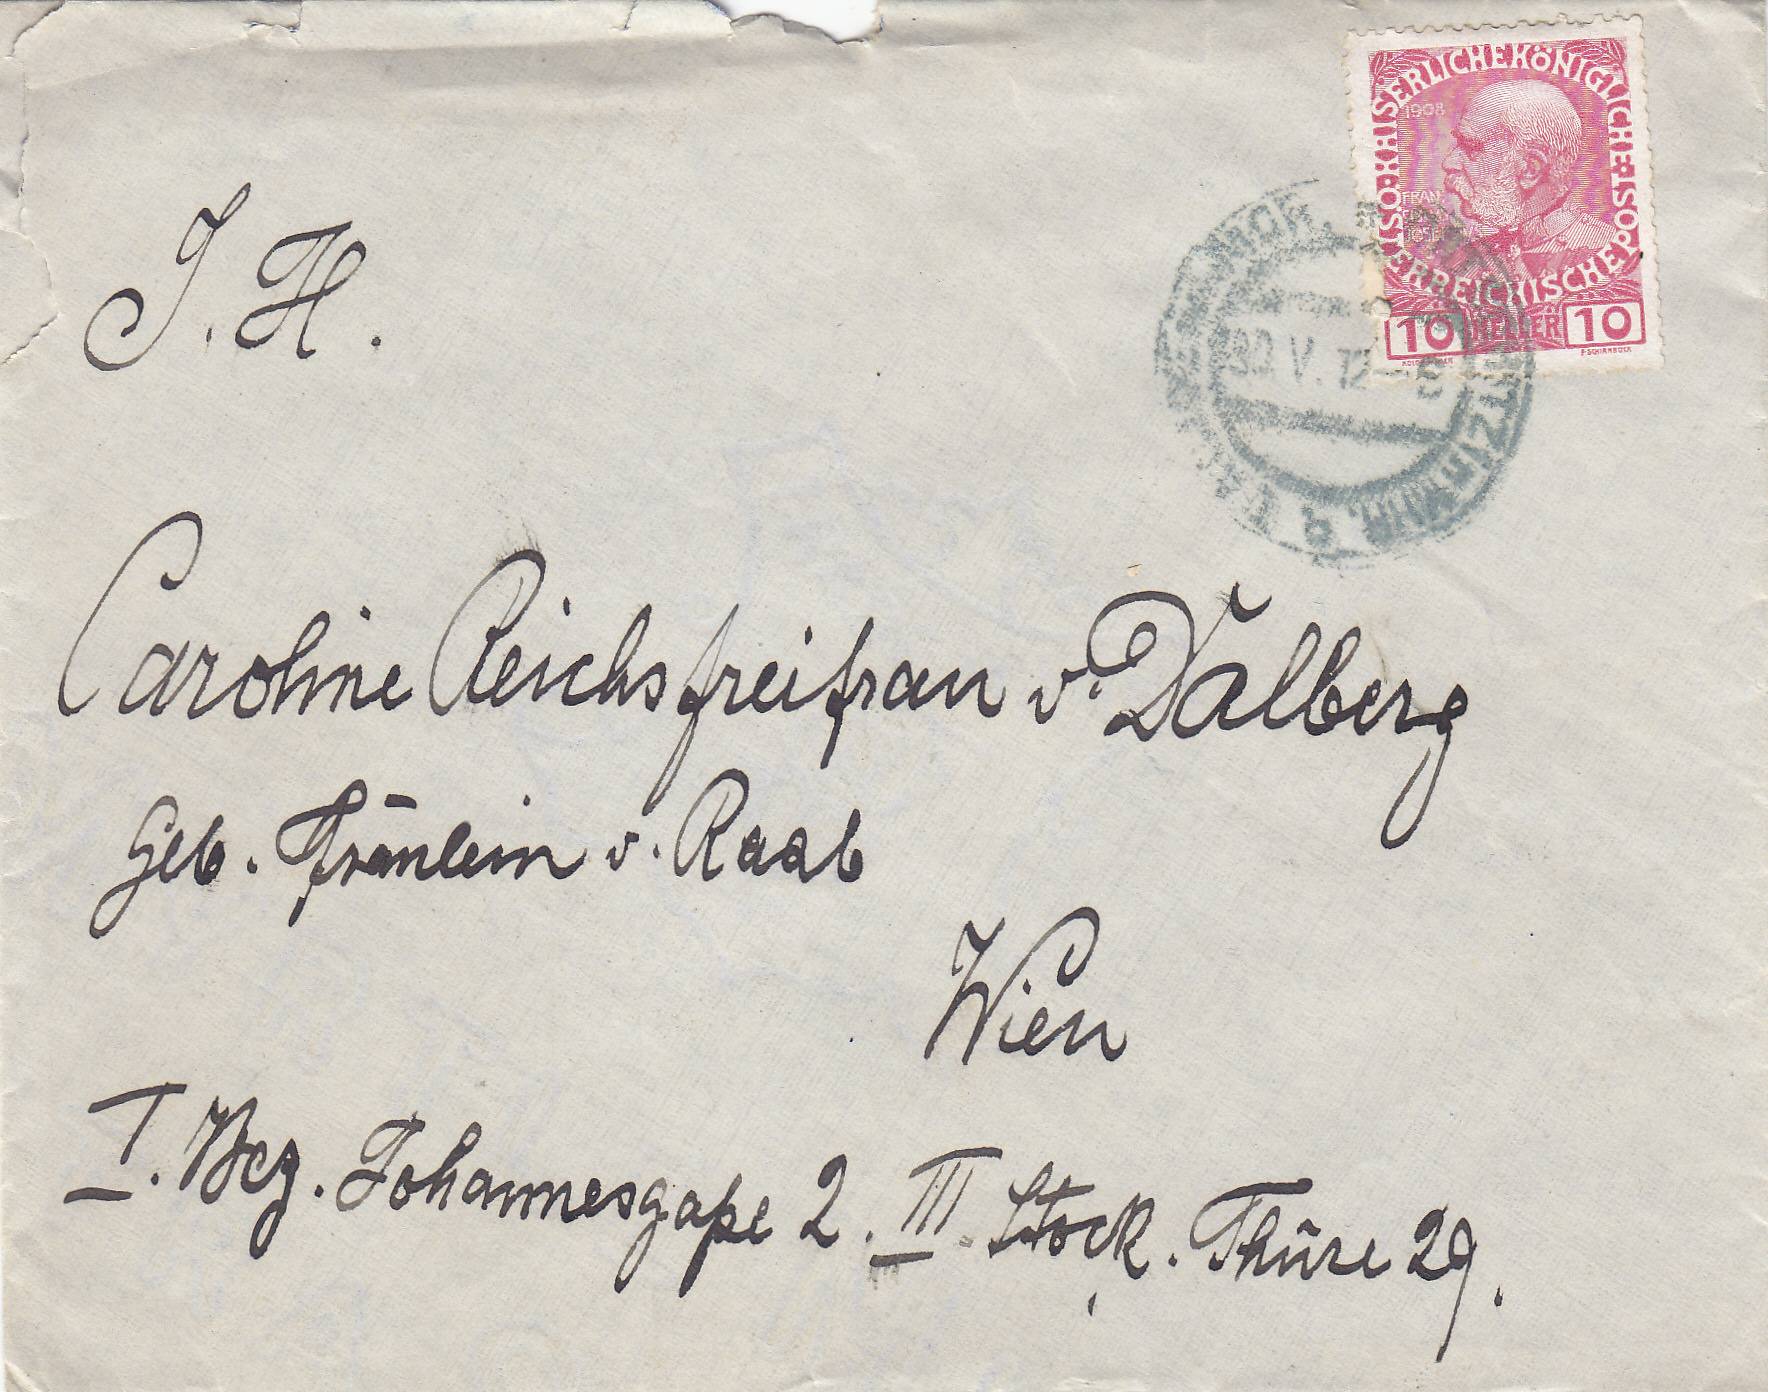 KAISERLICHE KÖNIGLICHE ÖSTERREICHISCHE POST
1908
FRANZ JOSEF I
10 HELLER 10
F. SCHIRNBÖCK
V. 12
J. H.
Caroline Reichsfreifrau v. Dalberg
Geb. Fräulein v. Raab
Wien
I. Bez. Johannesgaße 2. III. Stock. Thüre 29.